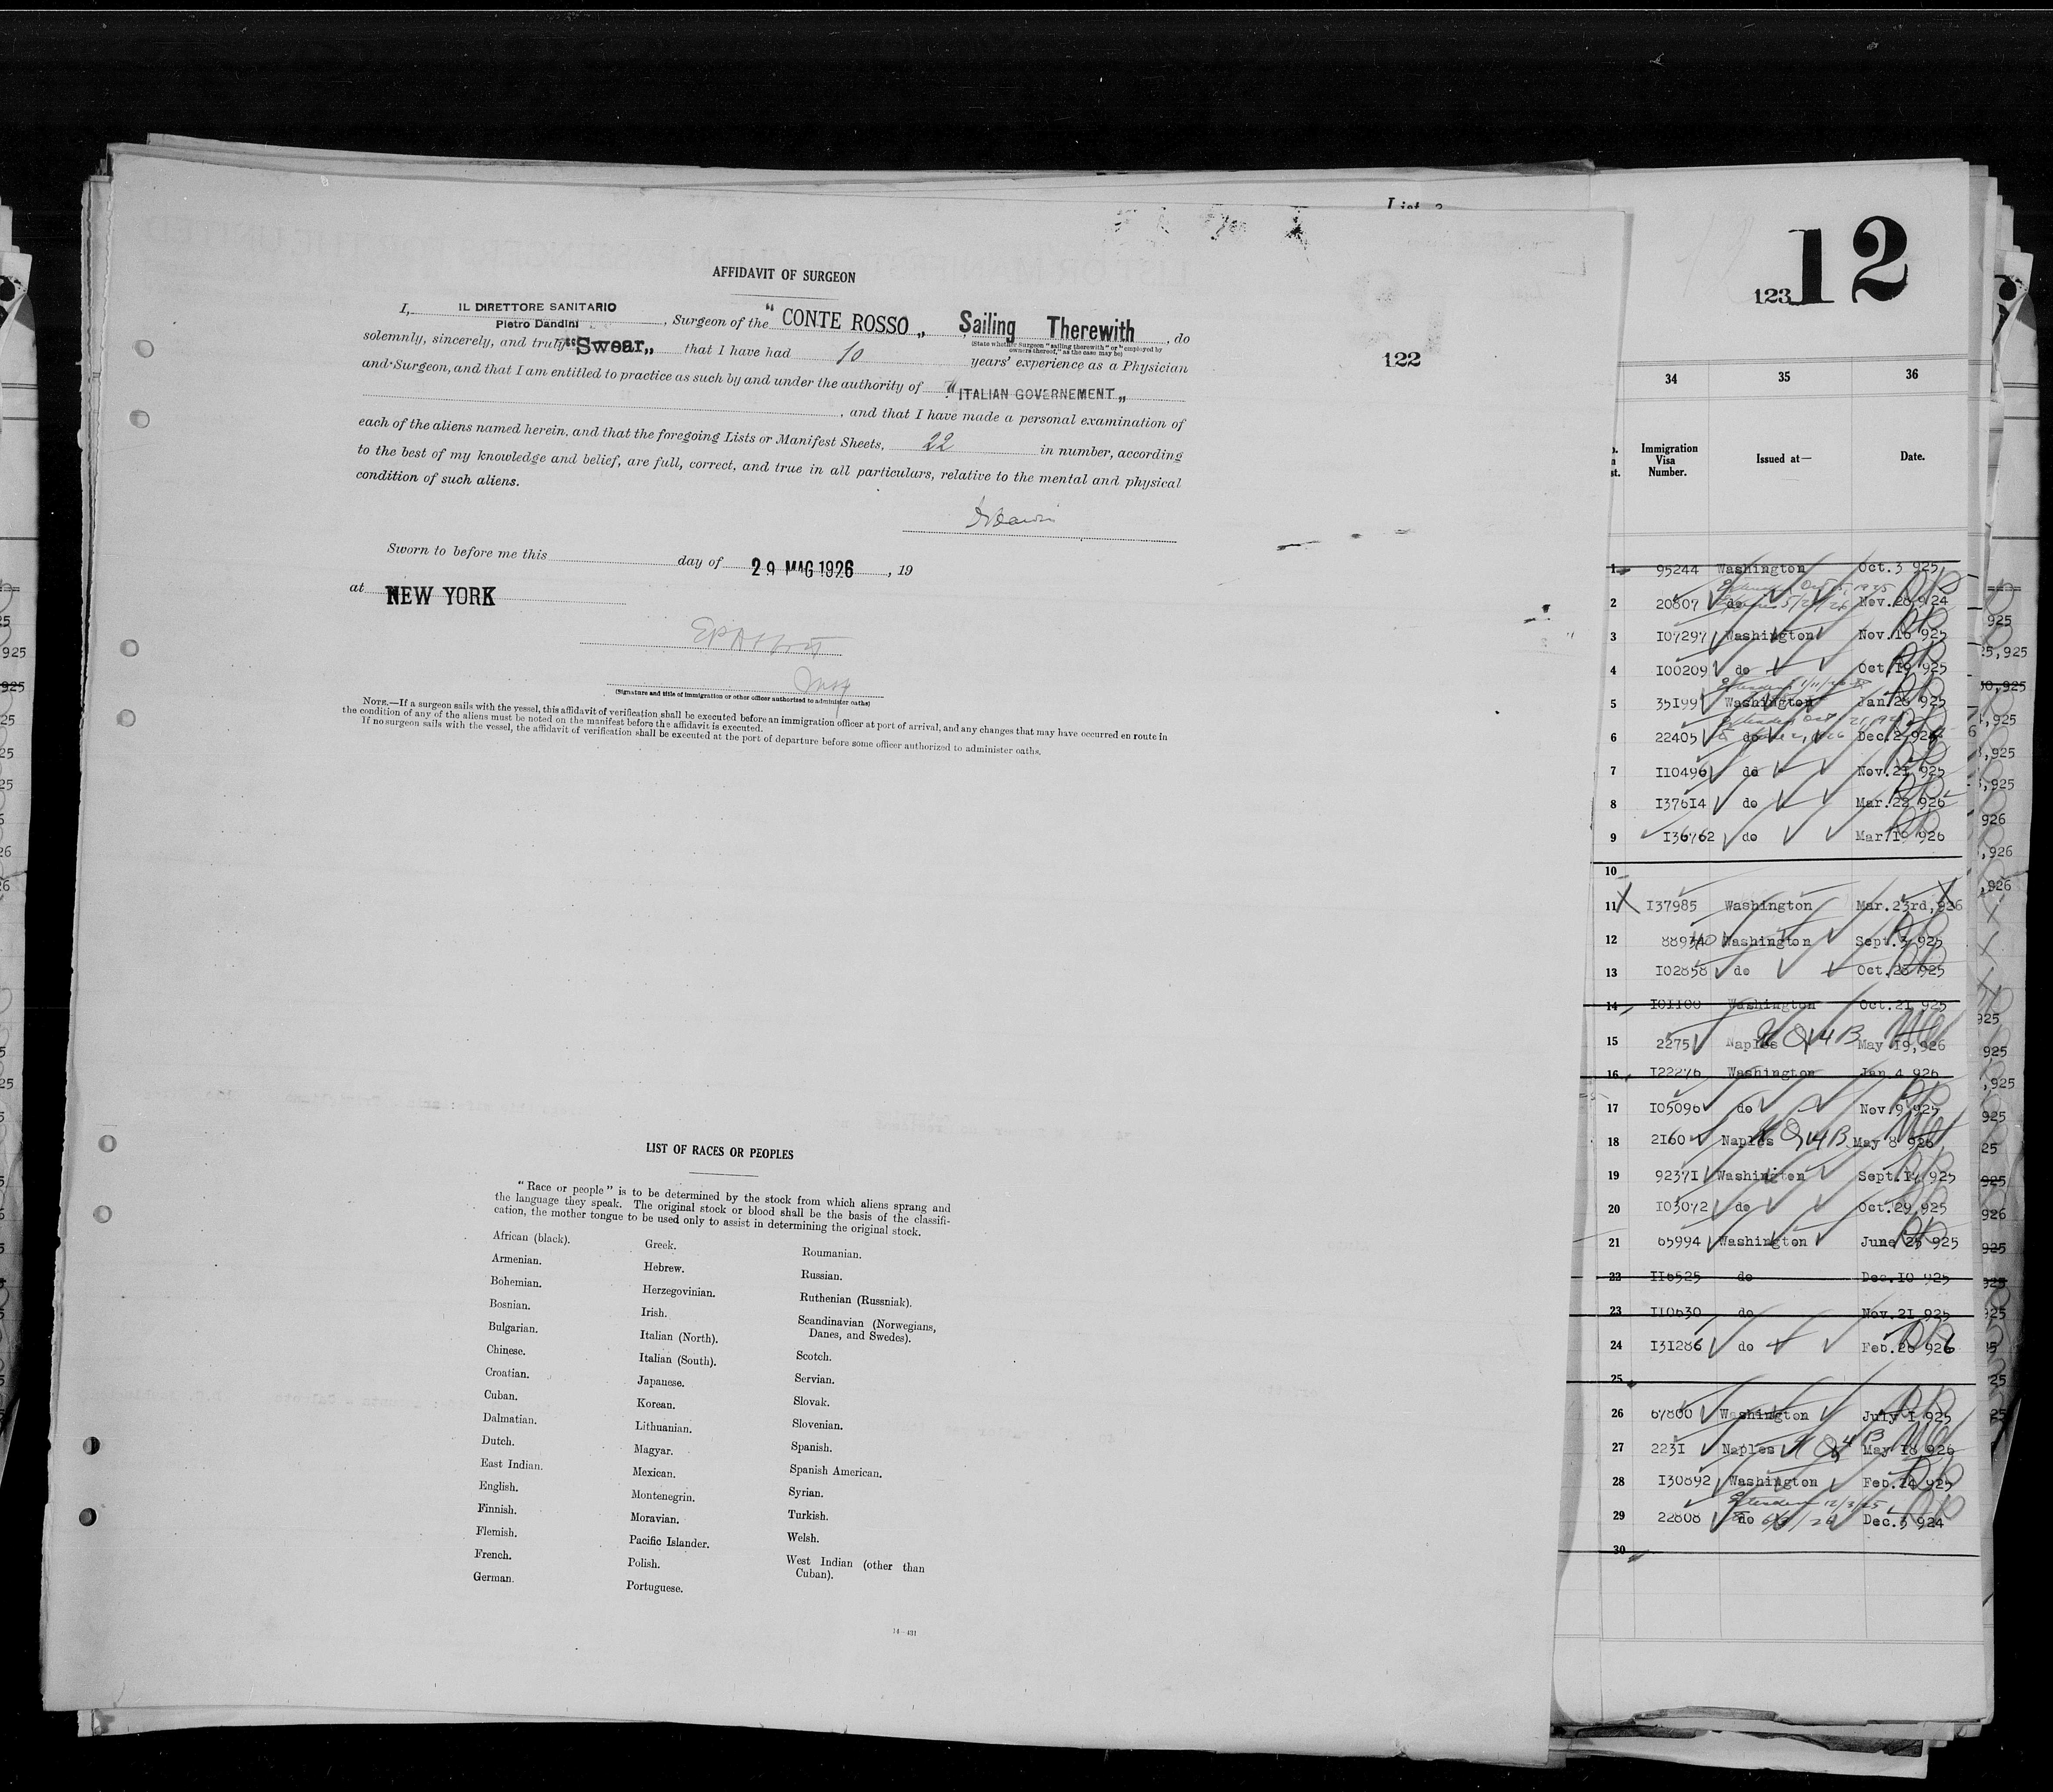 AFFIDAVIT OF SURGEON
I, IL DIRETTORE SANITARIO Pietro Dandini, Surgeon of the "CONTE ROSSO„ Sailing Therewith, do
(State whether Surgeon "sailing therewith" or "employed by owners thereof," as the case may be)
solemnly, sincerely, and truly "Swear„ that I have had 10 years' experience as a Physician
and Surgeon, and that I am entitled to practice as such by and under the authority of "ITALIAN GOVERNEMENT„
, and that I have made a personal examination of
each of the aliens named herein, and that the foregoing Lists or Manifest Sheets, 22 in number, according
to the best of my knowledge and belief, are full, correct, and true in all particulars, relative to the mental and physical
condition of such aliens.
Sworn to before me this day of 29 MAG 1926, 19
at NEW YORK
(Signature and title of immigration or other officer authorized to administer oaths)
NOTE.—If a surgeon sails with the vessel, this affidavit of verification shall be executed before an immigration officer at port of arrival, and any changes that may have occurred en route in
the condition of any of the aliens must be noted on the manifest before the affidavit is executed.
If no surgeon sails with the vessel, the affidavit of verification shall be executed at the port of departure before some officer authorized to administer oaths.
LIST OF RACES OR PEOPLES
"Race or people" is to be determined by the stock from which aliens sprang and
the language they speak. The original stock or blood shall be the basis of the classifi-
cation, the mother tongue to be used only to assist in determining the original stock.
African (black).
Armenian.
Bohemian.
Bosnian.
Bulgarian.
Chinese.
Croatian.
Cuban.
Dalmatian.
Dutch.
East Indian.
English.
Finnish.
Flemish.
French.
German.
Greek.
Hebrew.
Herzegovinian.
Irish.
Italian (North).
Italian (South).
Japanese.
Korean.
Lithuanian.
Magyar.
Mexican.
Montenegrin.
Moravian.
Pacific Islander.
Polish.
Portuguese.
Roumanian.
Russian.
Ruthenian (Russniak).
Scandinavian (Norwegians,
Danes, and Swedes).
Scotch.
Servian.
Slovak.
Slovenian.
Spanish.
Spanish American.
Syrian.
Turkish.
Welsh.
West Indian (other than
Cuban).
14—431
List
122
123
12
34 35 36
Immigration Visa Number. Issued at— Date.
1 95244 Washington Oct.3 925
2 20807 do Nov.28 924
3 I07297 Washington Nov.16 925
4 I00209 do Oct.19 925
5 35I99 Washington Jan.26 925
6 22405 do Dec.2,924
7 II0496 do Nov.21 925
8 I376I4 do Mar.22 926
9 I36762 do Mar.19 926
10
11 I37985 Washington Mar.23rd,926
12 88940 Washington Sept.3 925
13 I02858 do Oct.28 925
14 I0II00 Washington Oct.21 925
15 2275 Naples Q 4 B May 19,926
16 I22276 Washington Jan.4 926
17 I05096 do Nov.9 925
18 2I60 Naples Q 4 B May 8 926
19 9237I Washington Sept.17 925
20 I03072 do Oct.29 925
21 65994 Washington June 25 925
22 II6525 do Dec.10 925
23 II0630 do Nov.21 925
24 I3I286 do Feb.26 926
25
26 67800 Washington July 1 925
27 223I Naples Q 4 B May 18 926
28 I30892 Washington Feb.24 925
29 22808 do Dec.3 924
30